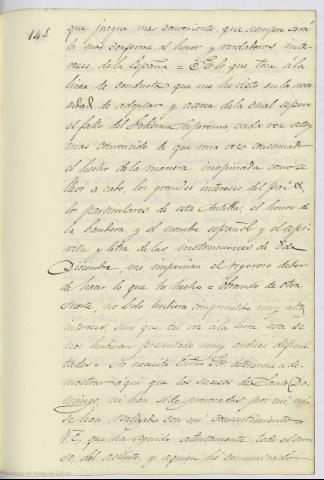 14.
que juzgue mas conveniente, que siempre será
la mas conforme al honor y verdaderos inte-
reses, de la España = En lo que toca á la
linea de conducta que me he visto en la nece
sidad de adoptar y acerca de la cual espero
el fallo del Gobierno Supremo, cada vez estoy
mas convencido de que una vez consumado
el hecho de la manera inopinada como se
llevó a cabo, los grandes intereses del pais,
los particulares de esta Antilla, el honor de
la bandera y el nombre español y el espi-
ritu y letra de las instrucciones de 8 de
Diciembre, me imponian el rigoroso deber
de hacer lo que he hecho = Obrando de otra
suerte, no solo hubiera comprometido muy altos
intereses, sino que tal vez a la hora esta se
nos hubieran presentado muy arduas dificul-
tades = No necesito Excmo Sr. detenerme a de-
mostrar aqui que los sucesos de Santo Do-
mingo, ni han sido provocados por mi ni
se han realizado con mi consentimiento
V.E. que ha seguido atentamente todo el cur-
so del asunto y a quien he comunicado